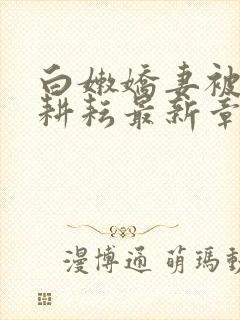 白嫩嬌妻被
耕耘最新章
漫博通 萌瑪動